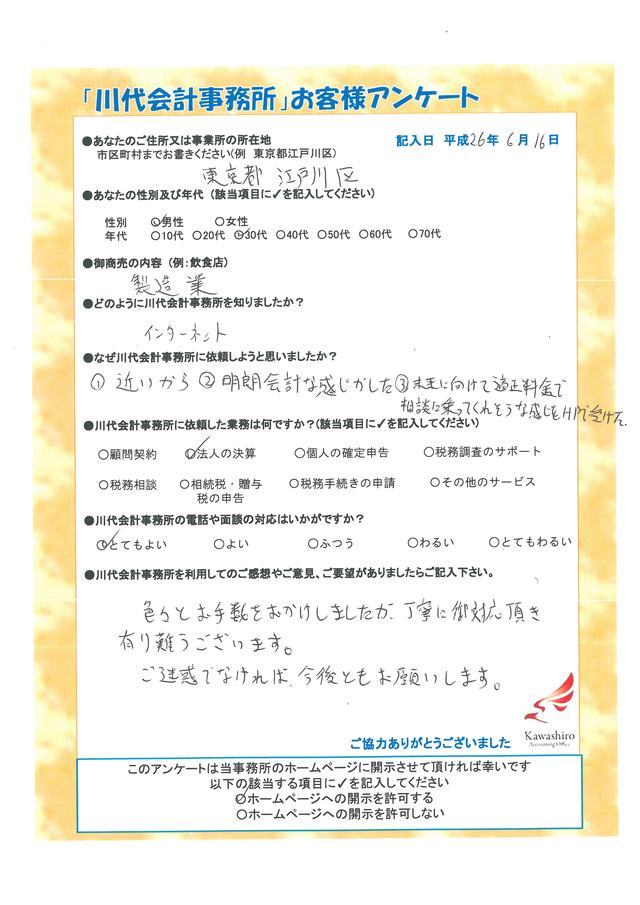 「川代会計事務所」お客様アンケート
●あなたのご住所又は事業所の所在地
記入日 平成26年 6月 16日
市区町村までお書きください(例 東京都江戸川区)
東京都 江戸川区
●あなたの性別及び年代 (該当項目に✓を記入してください)
性別 ✓男性 ○女性
年代 ○10代 ○20代 ✓30代 ○40代 ○50代 ○60代 ○70代
●御商売の内容 (例:飲食店)
製造業
●どのように川代会計事務所を知りましたか？
インターネット
●なぜ川代会計事務所に依頼しようと思いましたか？
① 近いから ② 明朗会計な感じがした ③ に向けて適正料金で
相談に乗ってくれそうな感じをHPで受けた.
●川代会計事務所に依頼した業務は何ですか？(該当項目に✓を記入してください)
○顧問契約 ✓法人の決算 ○個人の確定申告 ○税務調査のサポート
○税務相談 ○相続税・贈与 ○税務手続きの申請 ○その他のサービス
税の申告
●川代会計事務所の電話や面談の対応はいかがですか？
✓とてもよい ○よい ○ふつう ○わるい ○とてもわるい
●川代会計事務所を利用してのご感想やご意見、ご要望がありましたらご記入下さい。
色々とお手数をおかけしましたが、丁寧に御対応頂き
有り難うございます。
ご迷惑でなければ、今後ともお願いします。
Kawashiro
Accounting Office
ご協力ありがとうございました
このアンケートは当事務所のホームページに開示させて頂ければ幸いです
以下の該当する項目に✓を記入してください
✓ホームページへの開示を許可する
○ホームページへの開示を許可しない